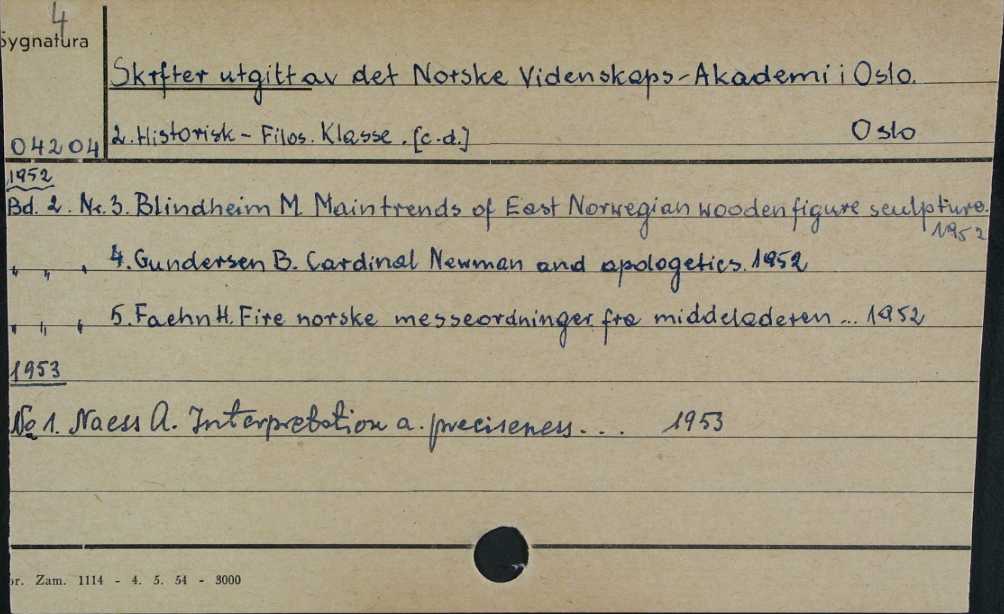 4
Sygnatura
Skrfter utgitt av det Norske Videnskaps-Akademi i Oslo.
04204
2. Historisk - Filos. Klasse. [c.d.]
Oslo
1952
Bd. 2. Nr. 3. Blindheim M. Main trends of East Norwegian wooden figure sculpture. 1952
" " " 4. Gundersen B. Cardinal Newman and apologetics. 1952
" " " 5. Faehn H. Fire norske messeordninger fra middeladeren ... 1952
1953
No 1. Naess A. Interpretation a. preciseness... 1953
or. Zam. 1114 - 4. 5. 54 - 3000